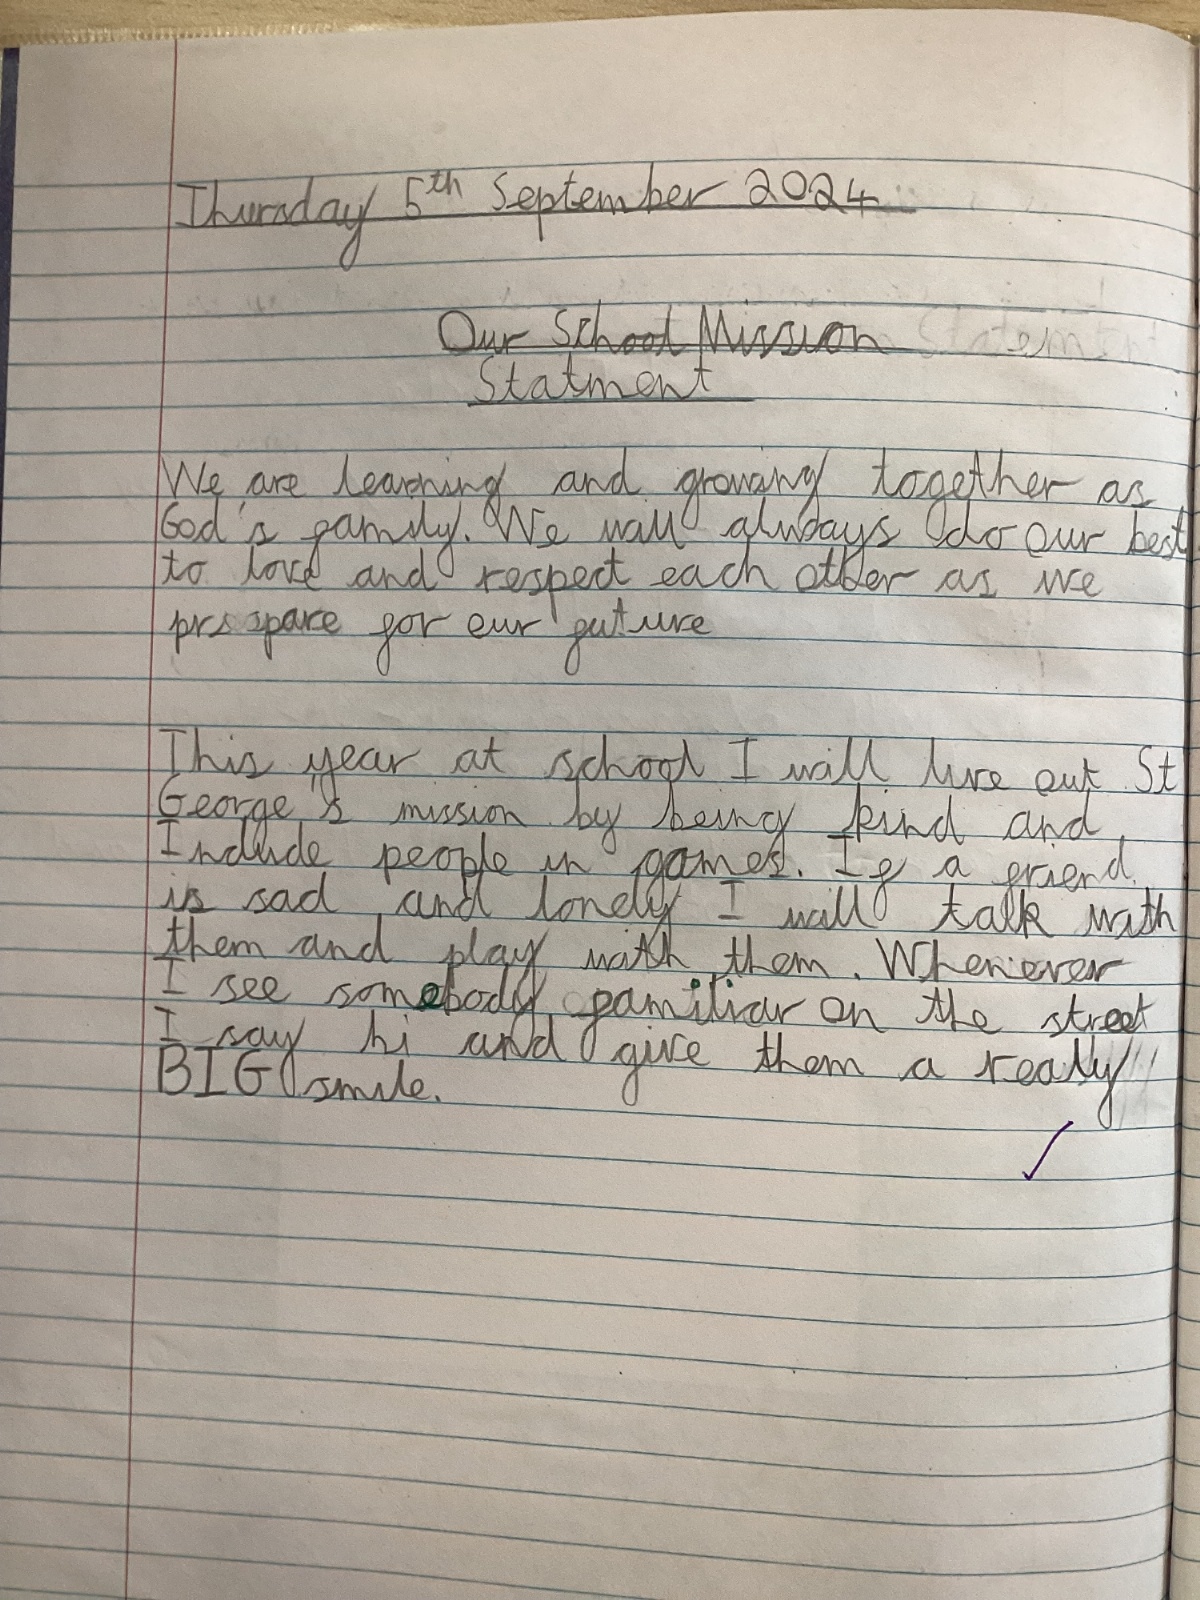 Thursday 5th September 2024
Our School Mission
Statment
We are learning and growing together as
God's family. We will always do our best
to love and respect each other as we
prepare for our future
This year at school I will live out St
George's mission by being kind and
Include people in games. If a friend
is sad and lonely I will talk with
them and play with them. Whenever
I see somebody familiar on the street
I say hi and give them a really
BIG smile.